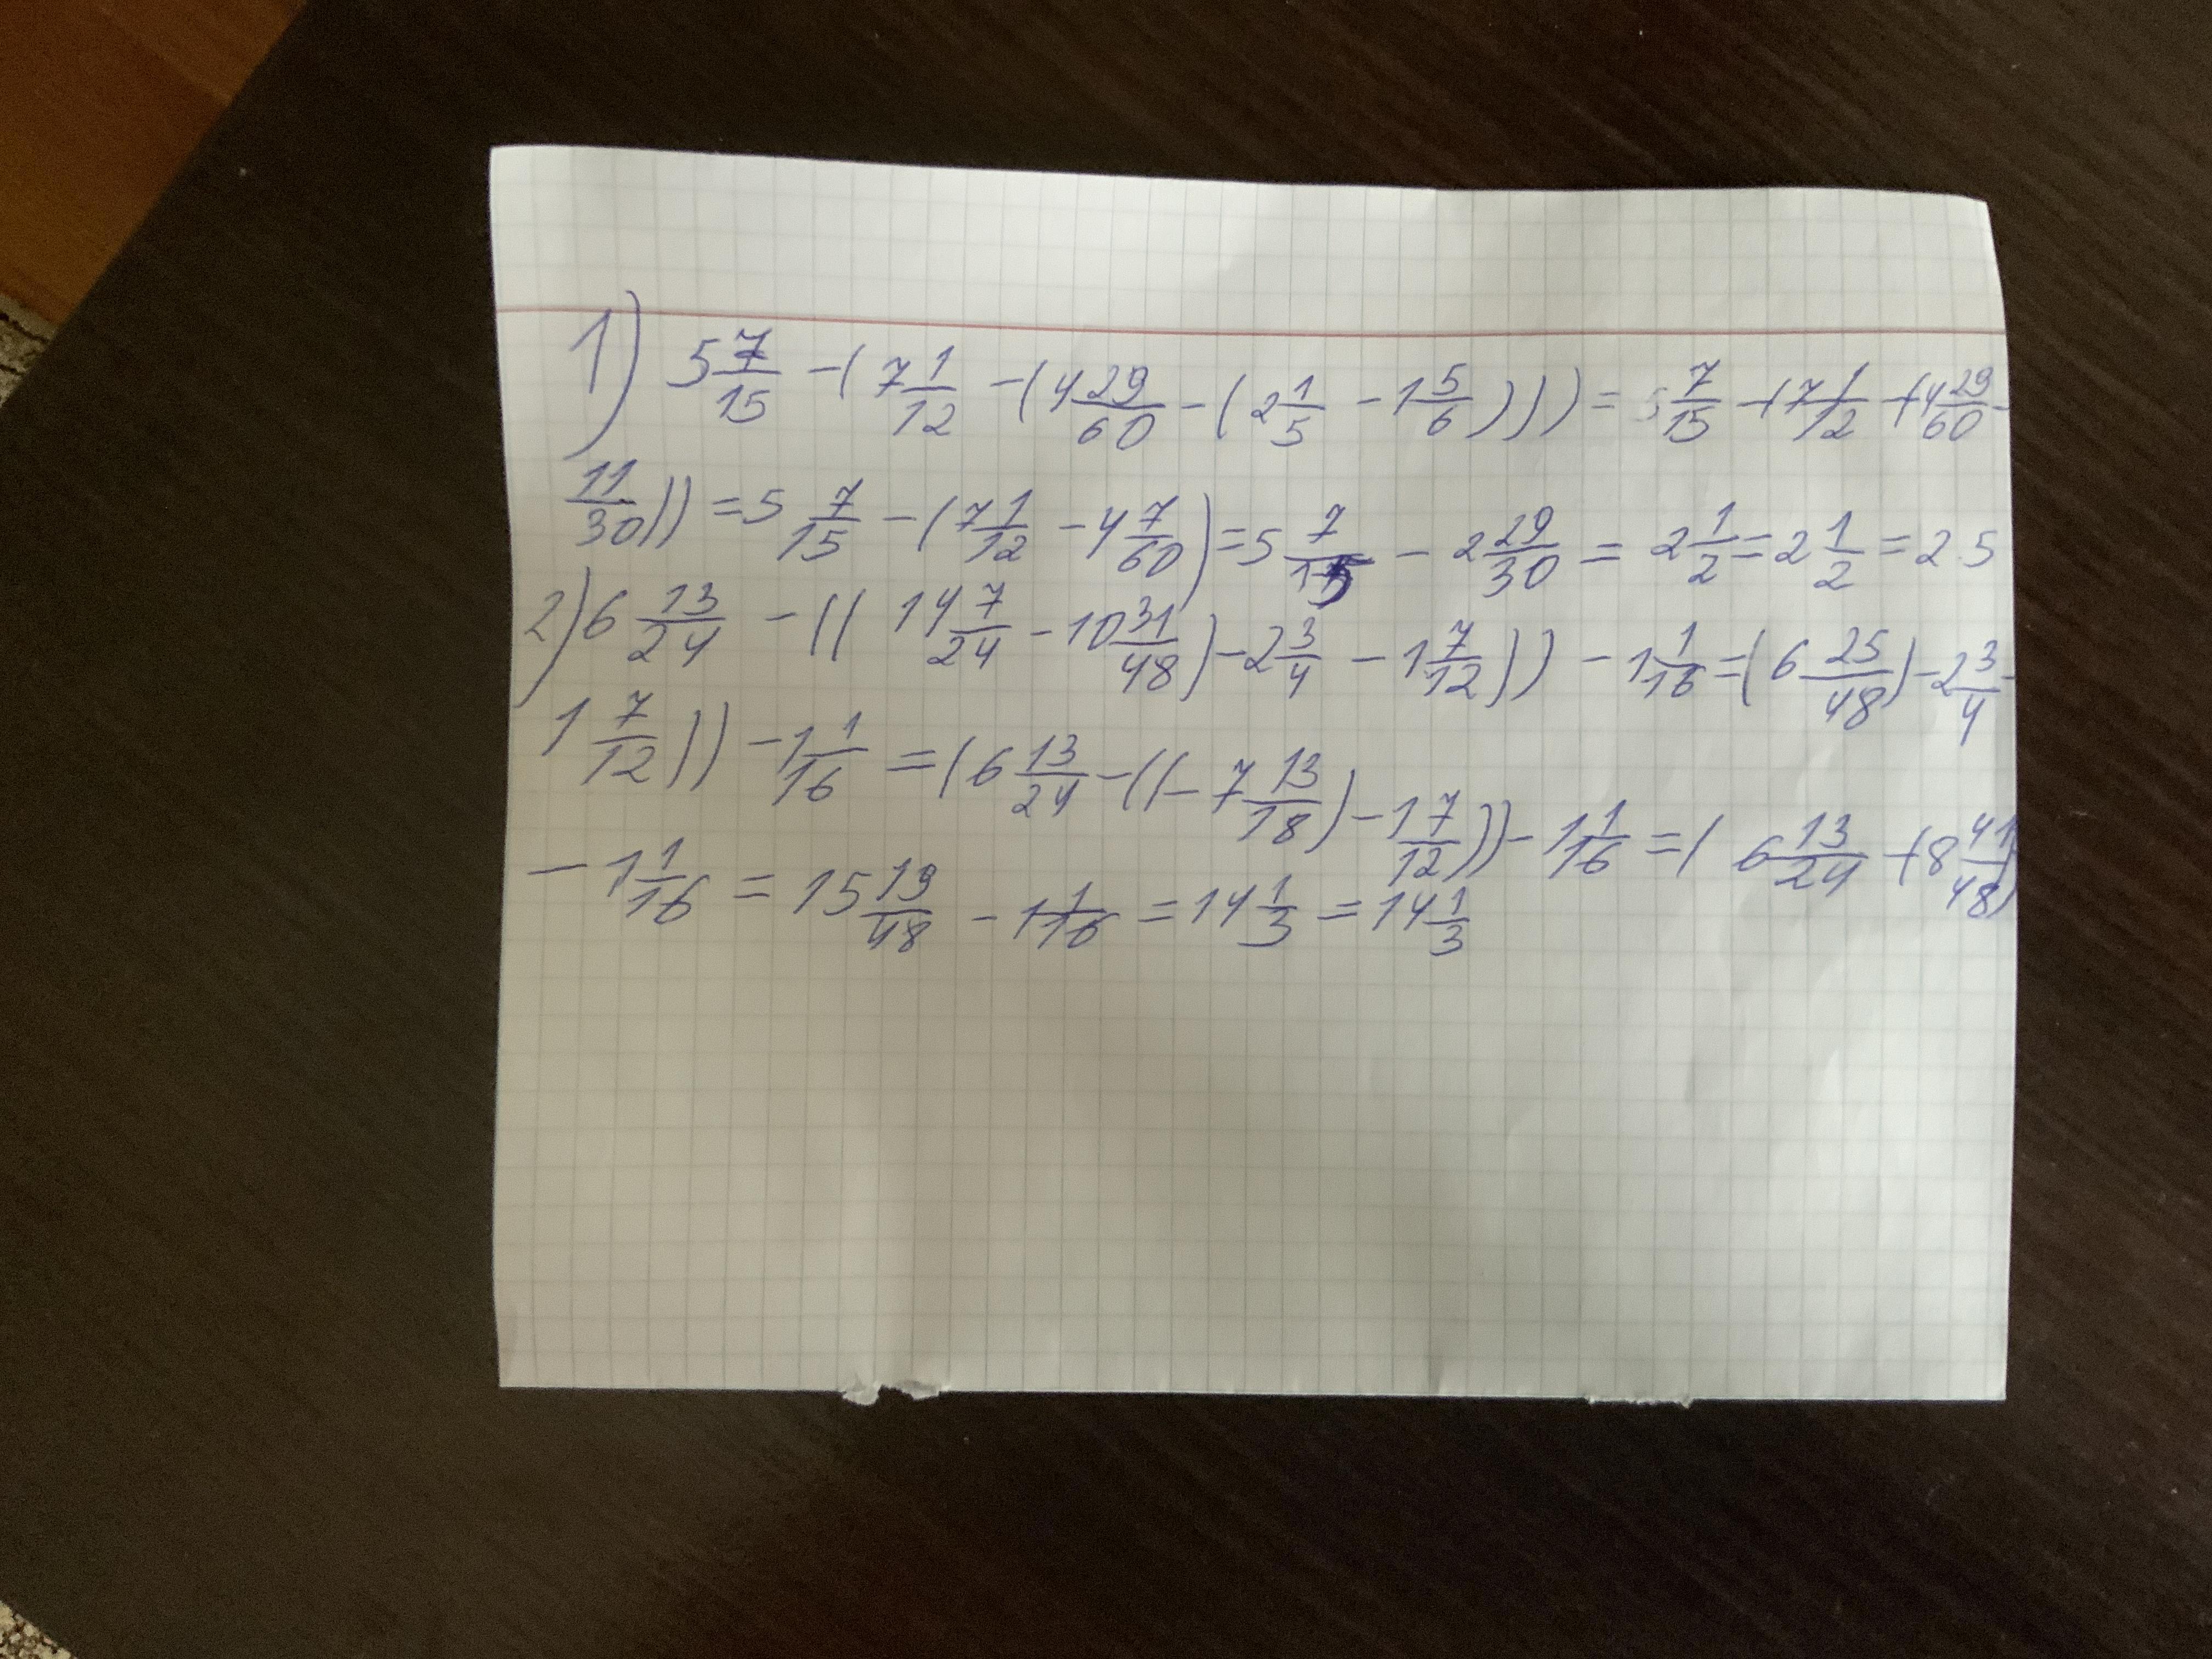 1) 5 7/15 - (7 1/12 - (4 29/60 - (2 1/5 - 1 5/6))) = 5 7/15 - (7 1/12 - (4 29/60 -
11/30)) = 5 7/15 - (7 1/12 - 4 7/60) = 5 7/15 - 2 29/30 = 2 1/2 = 2 1/2 = 2.5
2) 6 13/24 - ((14 7/24 - 10 31/48) - 2 3/4 - 1 7/12)) - 1 1/16 = (6 25/48) - 2 3/4 -
1 7/12)) - 1 1/16 = (6 13/24 - ((- 7 13/18) - 1 7/12)) - 1 1/16 = (6 13/24 + (8 41/48)
- 1 1/16 = 15 19/48 - 1 1/16 = 14 1/3 = 14 1/3